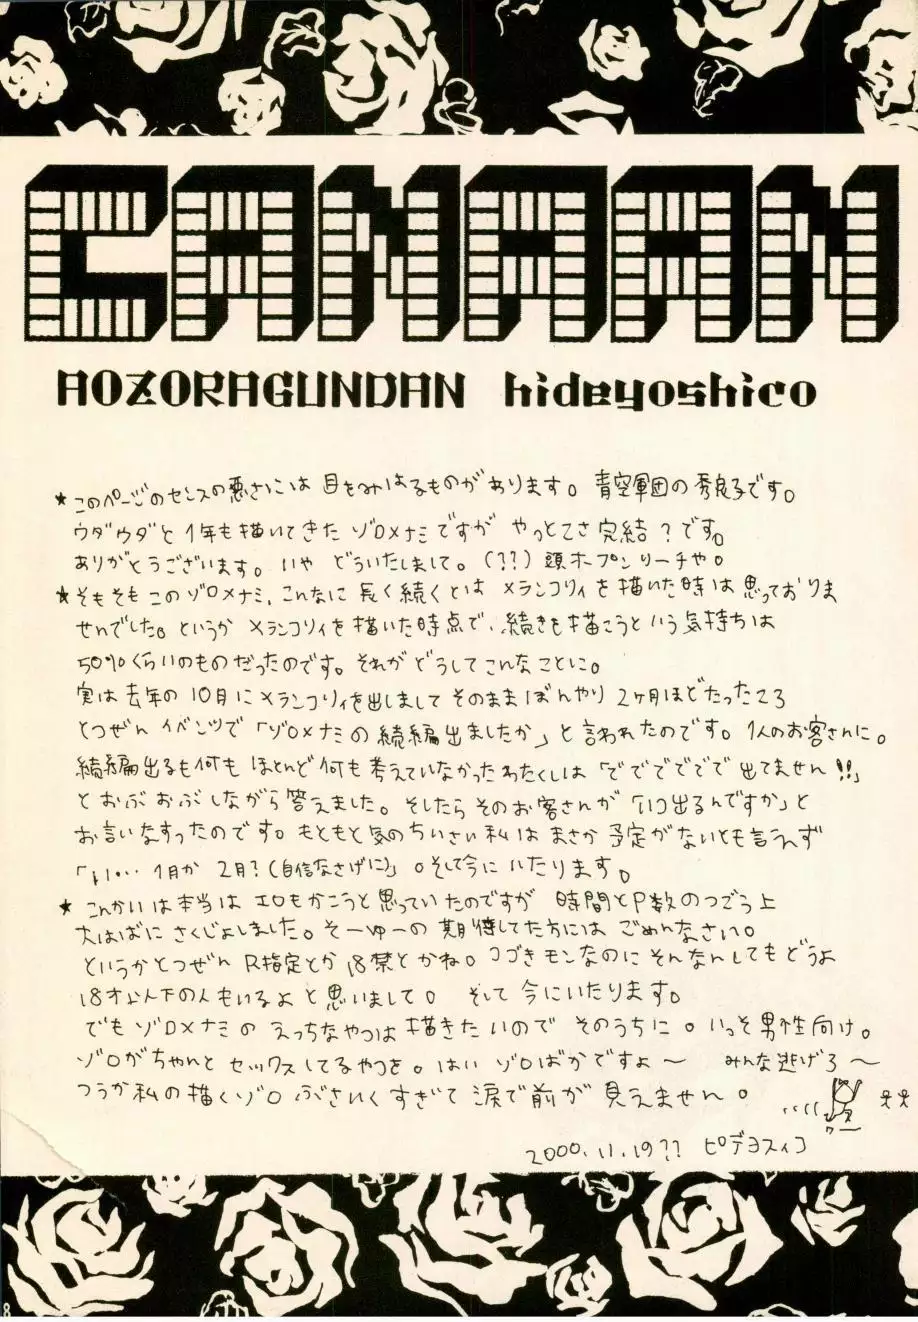 CANAAN
AOZORAGUNDAN hideyoshico
★このページのセンスの悪さには目をみはるものがあります。青空軍団の秀良子です。
ウダウダと1年も描いてきたゾロ×ナミですがやっとこさ完結？です。
ありがとうございます。いやどういたしまして。(??)頭オープンリーチや。
★そもそもこのゾロ×ナミ、こんなに長く続くとはメランコリィを描いた時は思っておりま
せんでした。というかメランコリィを描いた時点で、続きを描こうという気持ちは
50%くらいのものだったのです。それがどうしてこんなことに。
実は去年の10月にメランコリィを出しましてそのままぼんやり2ヶ月ほどたったころ
とつぜんイベンツで「ゾロ×ナミの続編出ましたか」と言われたのです。1人のお客さんに。
続編出るも何もほとんど何も考えていなかったわたくしは「でででででで出てません!!」
とおぶおぶしながら答えました。そしたらそのお客さんが「いつ出るんですか」と
お言いなすったのです。もともと気のちいさい私はまさか予定がないとも言えず
「い…1月か2月?(自信なさげに)」。そして今にいたります。
★こんかいは本当はエロもかこうと思っていたのですが時間とP数のつごう上
大はばにさくじょしました。そーゆーの期待してた方にはごめんなさい。
というかとつぜんR指定とか18禁とかね。コゴきモンなのにそんなんしてもどうよ
18才以下の人もいるよと思いまして。そして今にいたります。
でもゾロ×ナミのえっちなやつは描きたいのでそのうちに。いっそ男性向け。
ゾロがちゃんとセックスしてるやつを。はいゾロばかですよ〜 みんな逃げろ〜
つうか私の描くゾロぶさいくすぎて涙で前が見えません。
2000.11.19?? ピデヨスィコ
8